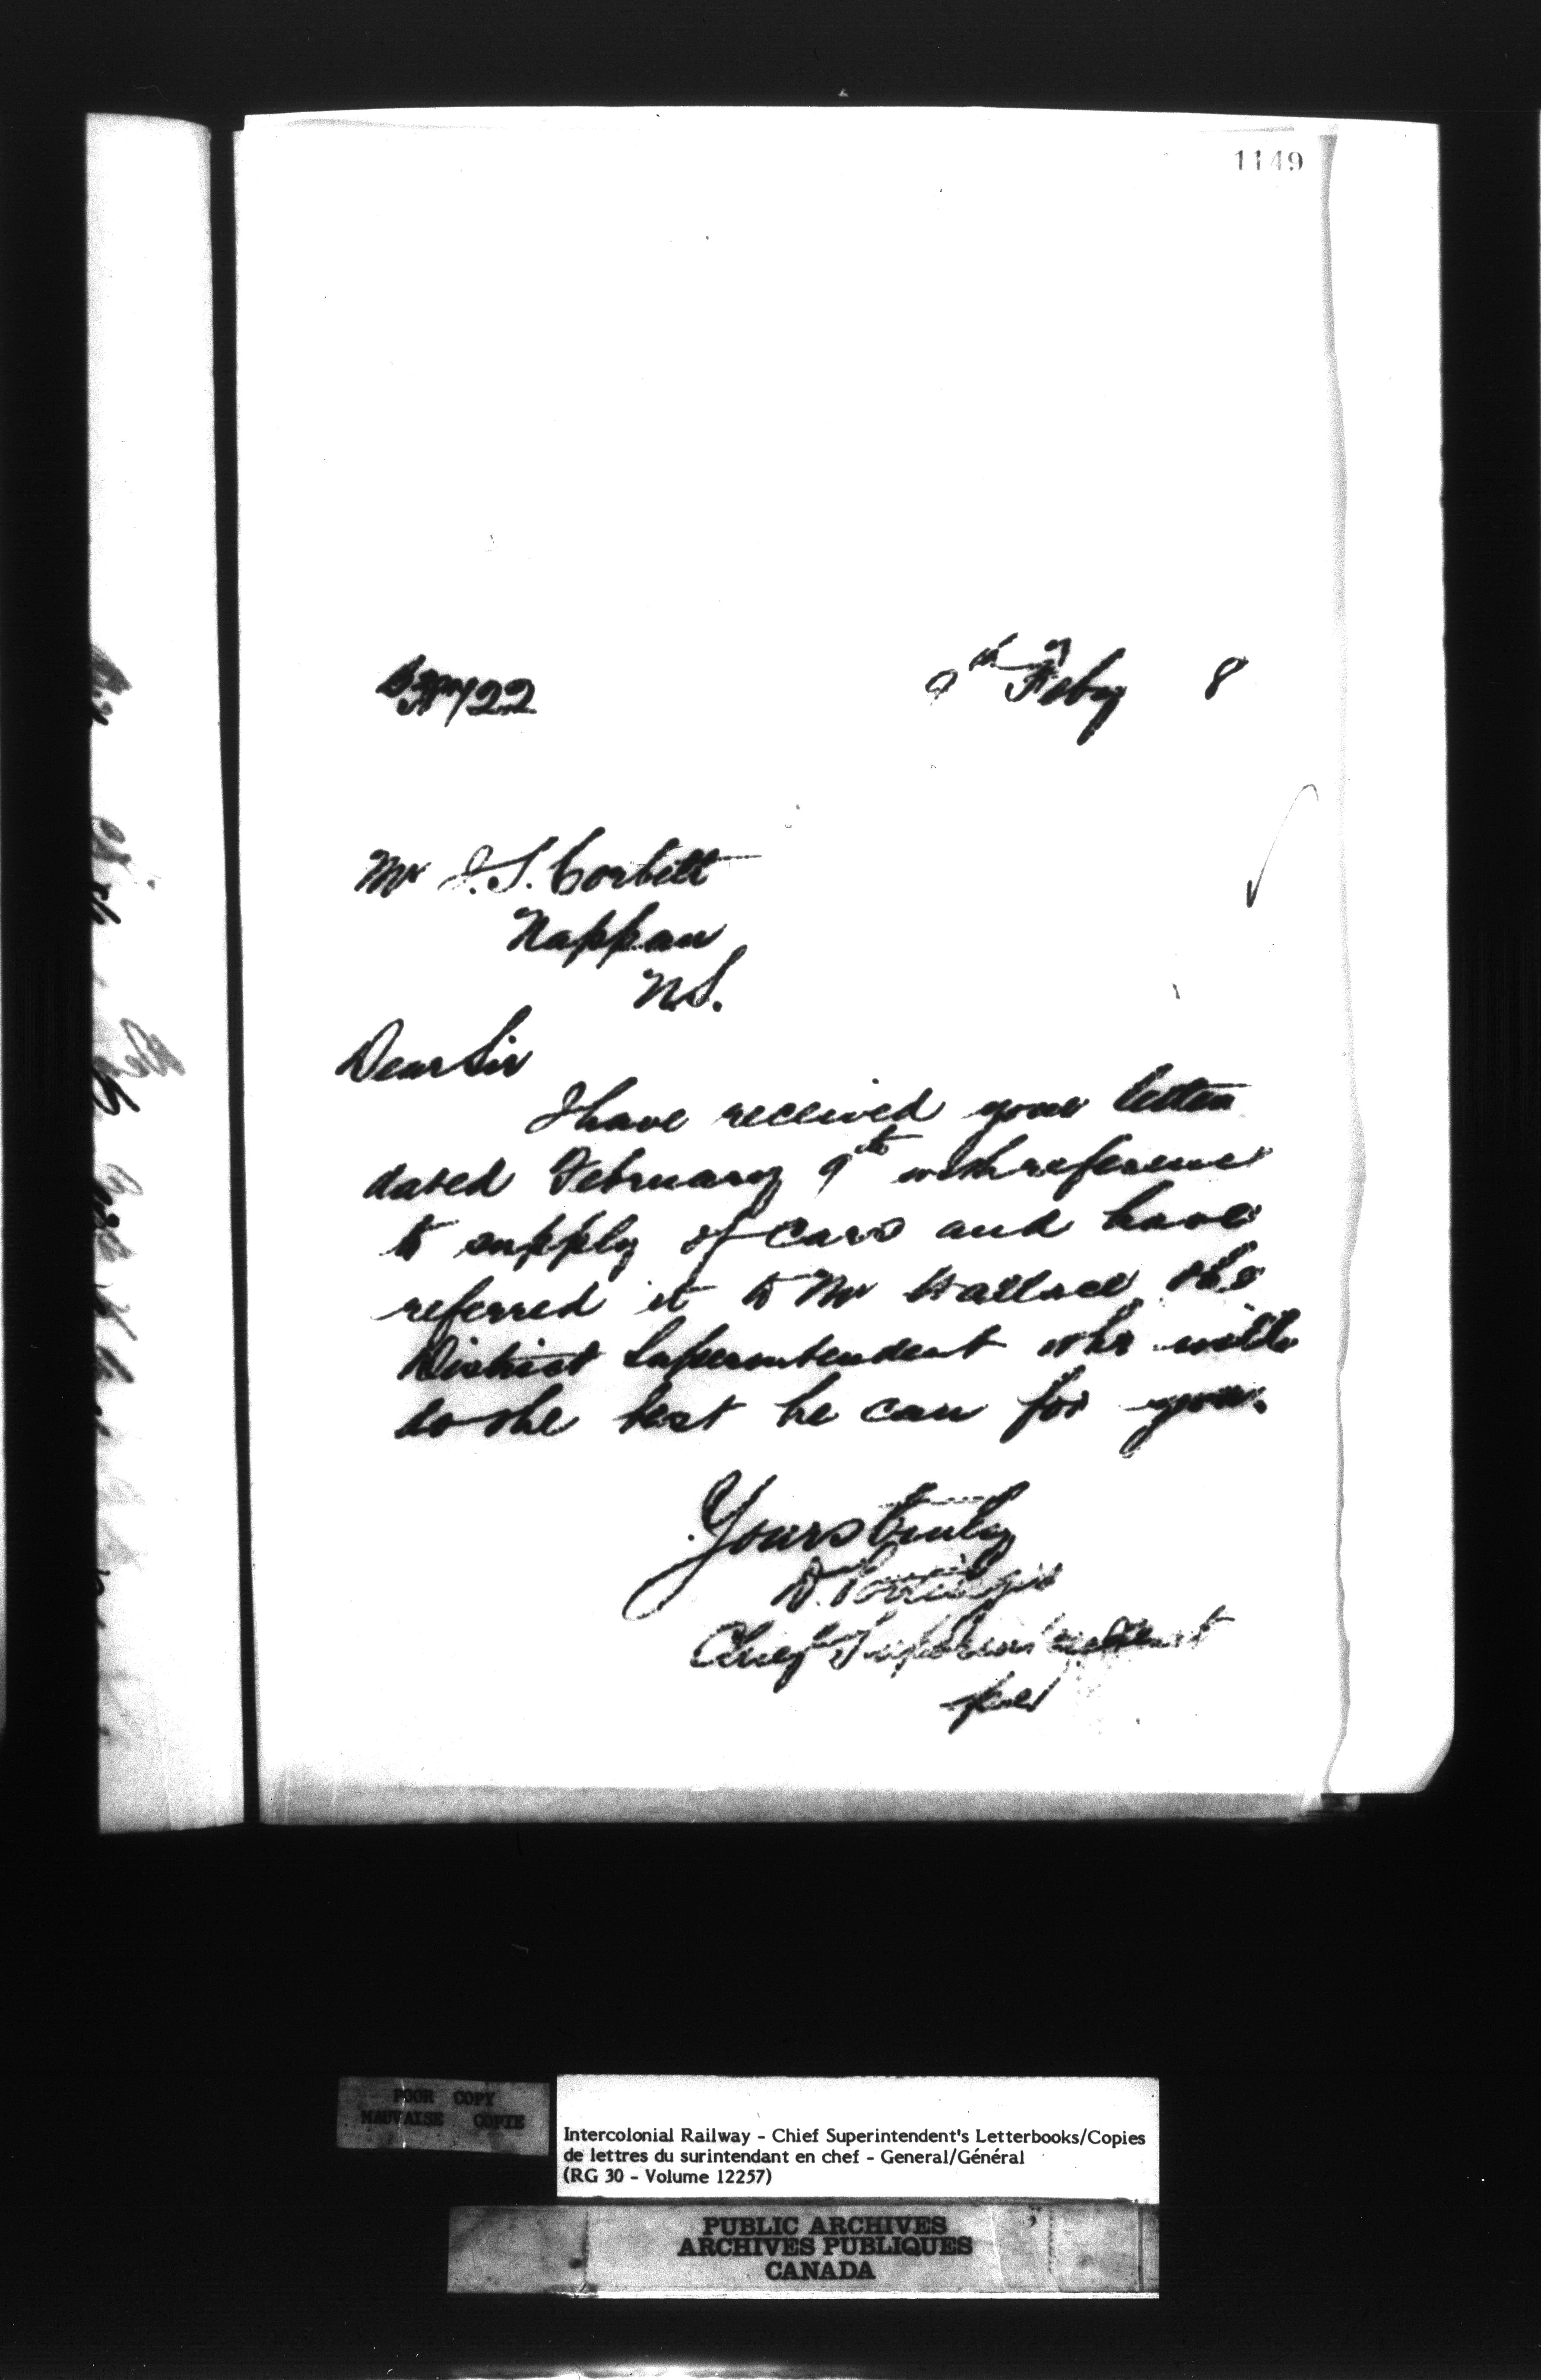 1149
9th Feby 8
Mr J. S. Corbett
Nappan
N.S.
Dear Sir
I have received your letter
dated February 9th with reference
to supply of cars and have
referred it to Mr Wallace the
District Superintendent who will
do the best he can for you.
Yours truly
D. Pottinger
Chief Superintendent
per
POOR COPY
MAUVAISE COPIE
Intercolonial Railway - Chief Superintendent's Letterbooks/Copies
de lettres du surintendant en chef - General/Général
(RG 30 - Volume 12257)
PUBLIC ARCHIVES
ARCHIVES PUBLIQUES
CANADA